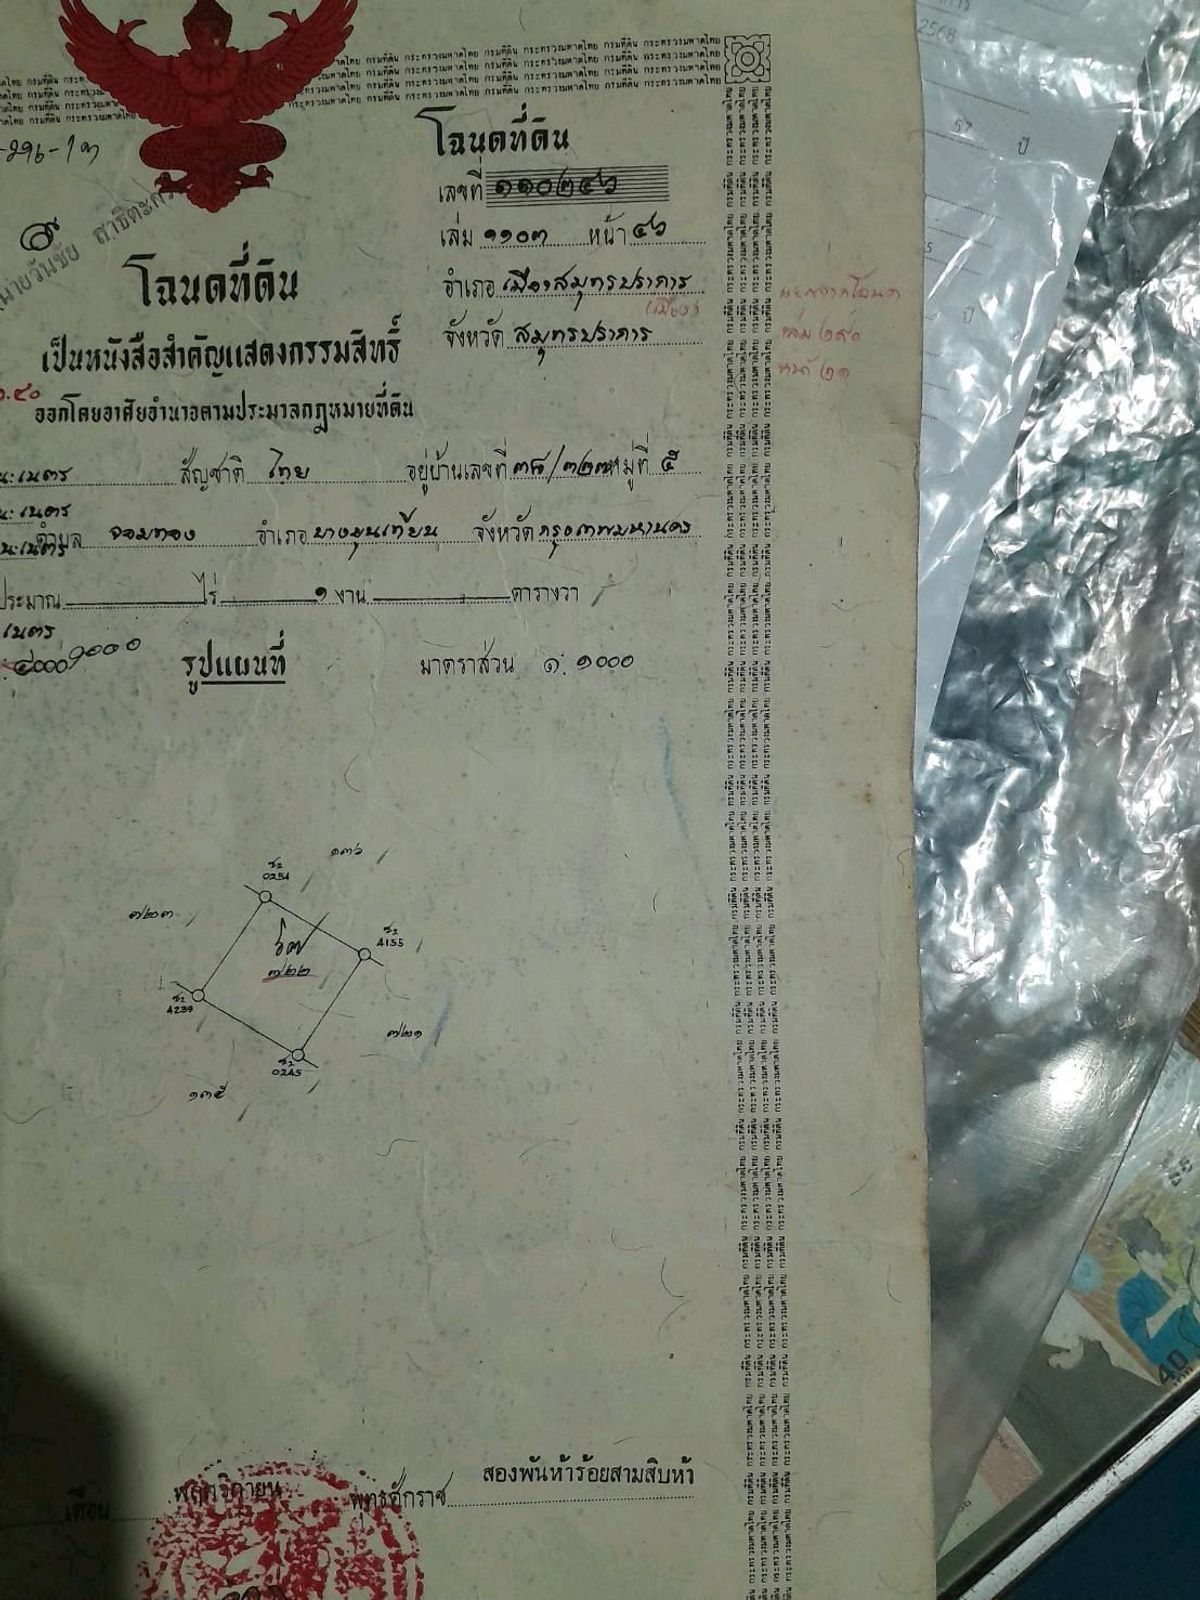 กรมที่ดิน กระทรวงมหาดไทย กรมที่ดิน กระทรวงมหาดไทย กรมที่ดิน กระทรวงมหาดไทย
2568
57 ปี
ปี
โฉนดที่ดิน
เลขที่ ๑๑๐๒๔๖
เล่ม ๑๑๐๓ หน้า ๔๖
อำเภอ เมืองสมุทรปราการ
(เมือง)
จังหวัด สมุทรปราการ
แยกจากโฉนด
เล่ม ๒๙๐
หน้า ๒๑
นายวันชัย
โฉนดที่ดิน
เป็นหนังสือสำคัญแสดงกรรมสิทธิ์
ออกโดยอาศัยอำนาจตามประมวลกฎหมายที่ดิน
สัญชาติ ไทย อยู่บ้านเลขที่ ๓๘/๓๒๓ หมู่ที่ ๕
ตำบล จอมทอง อำเภอ บางขุนเทียน จังหวัด กรุงเทพมหานคร
ประมาณ ไร่ ๑ งาน ตารางวา
เนตร
รูปแผนที่ มาตราส่วน ๑:๑๐๐๐
๑๓๖
0254
๗๒๓
4155
๗๒๒
4239
๗๒๑
0245
๑๓๕
สองพันห้าร้อยสามสิบห้า
เดือน พฤศจิกายน พุทธศักราช
40